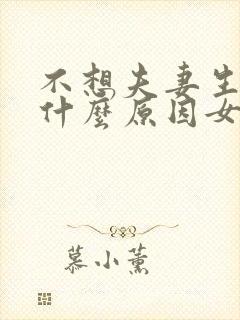 不想夫妻生
什麼原因女
慕小薰